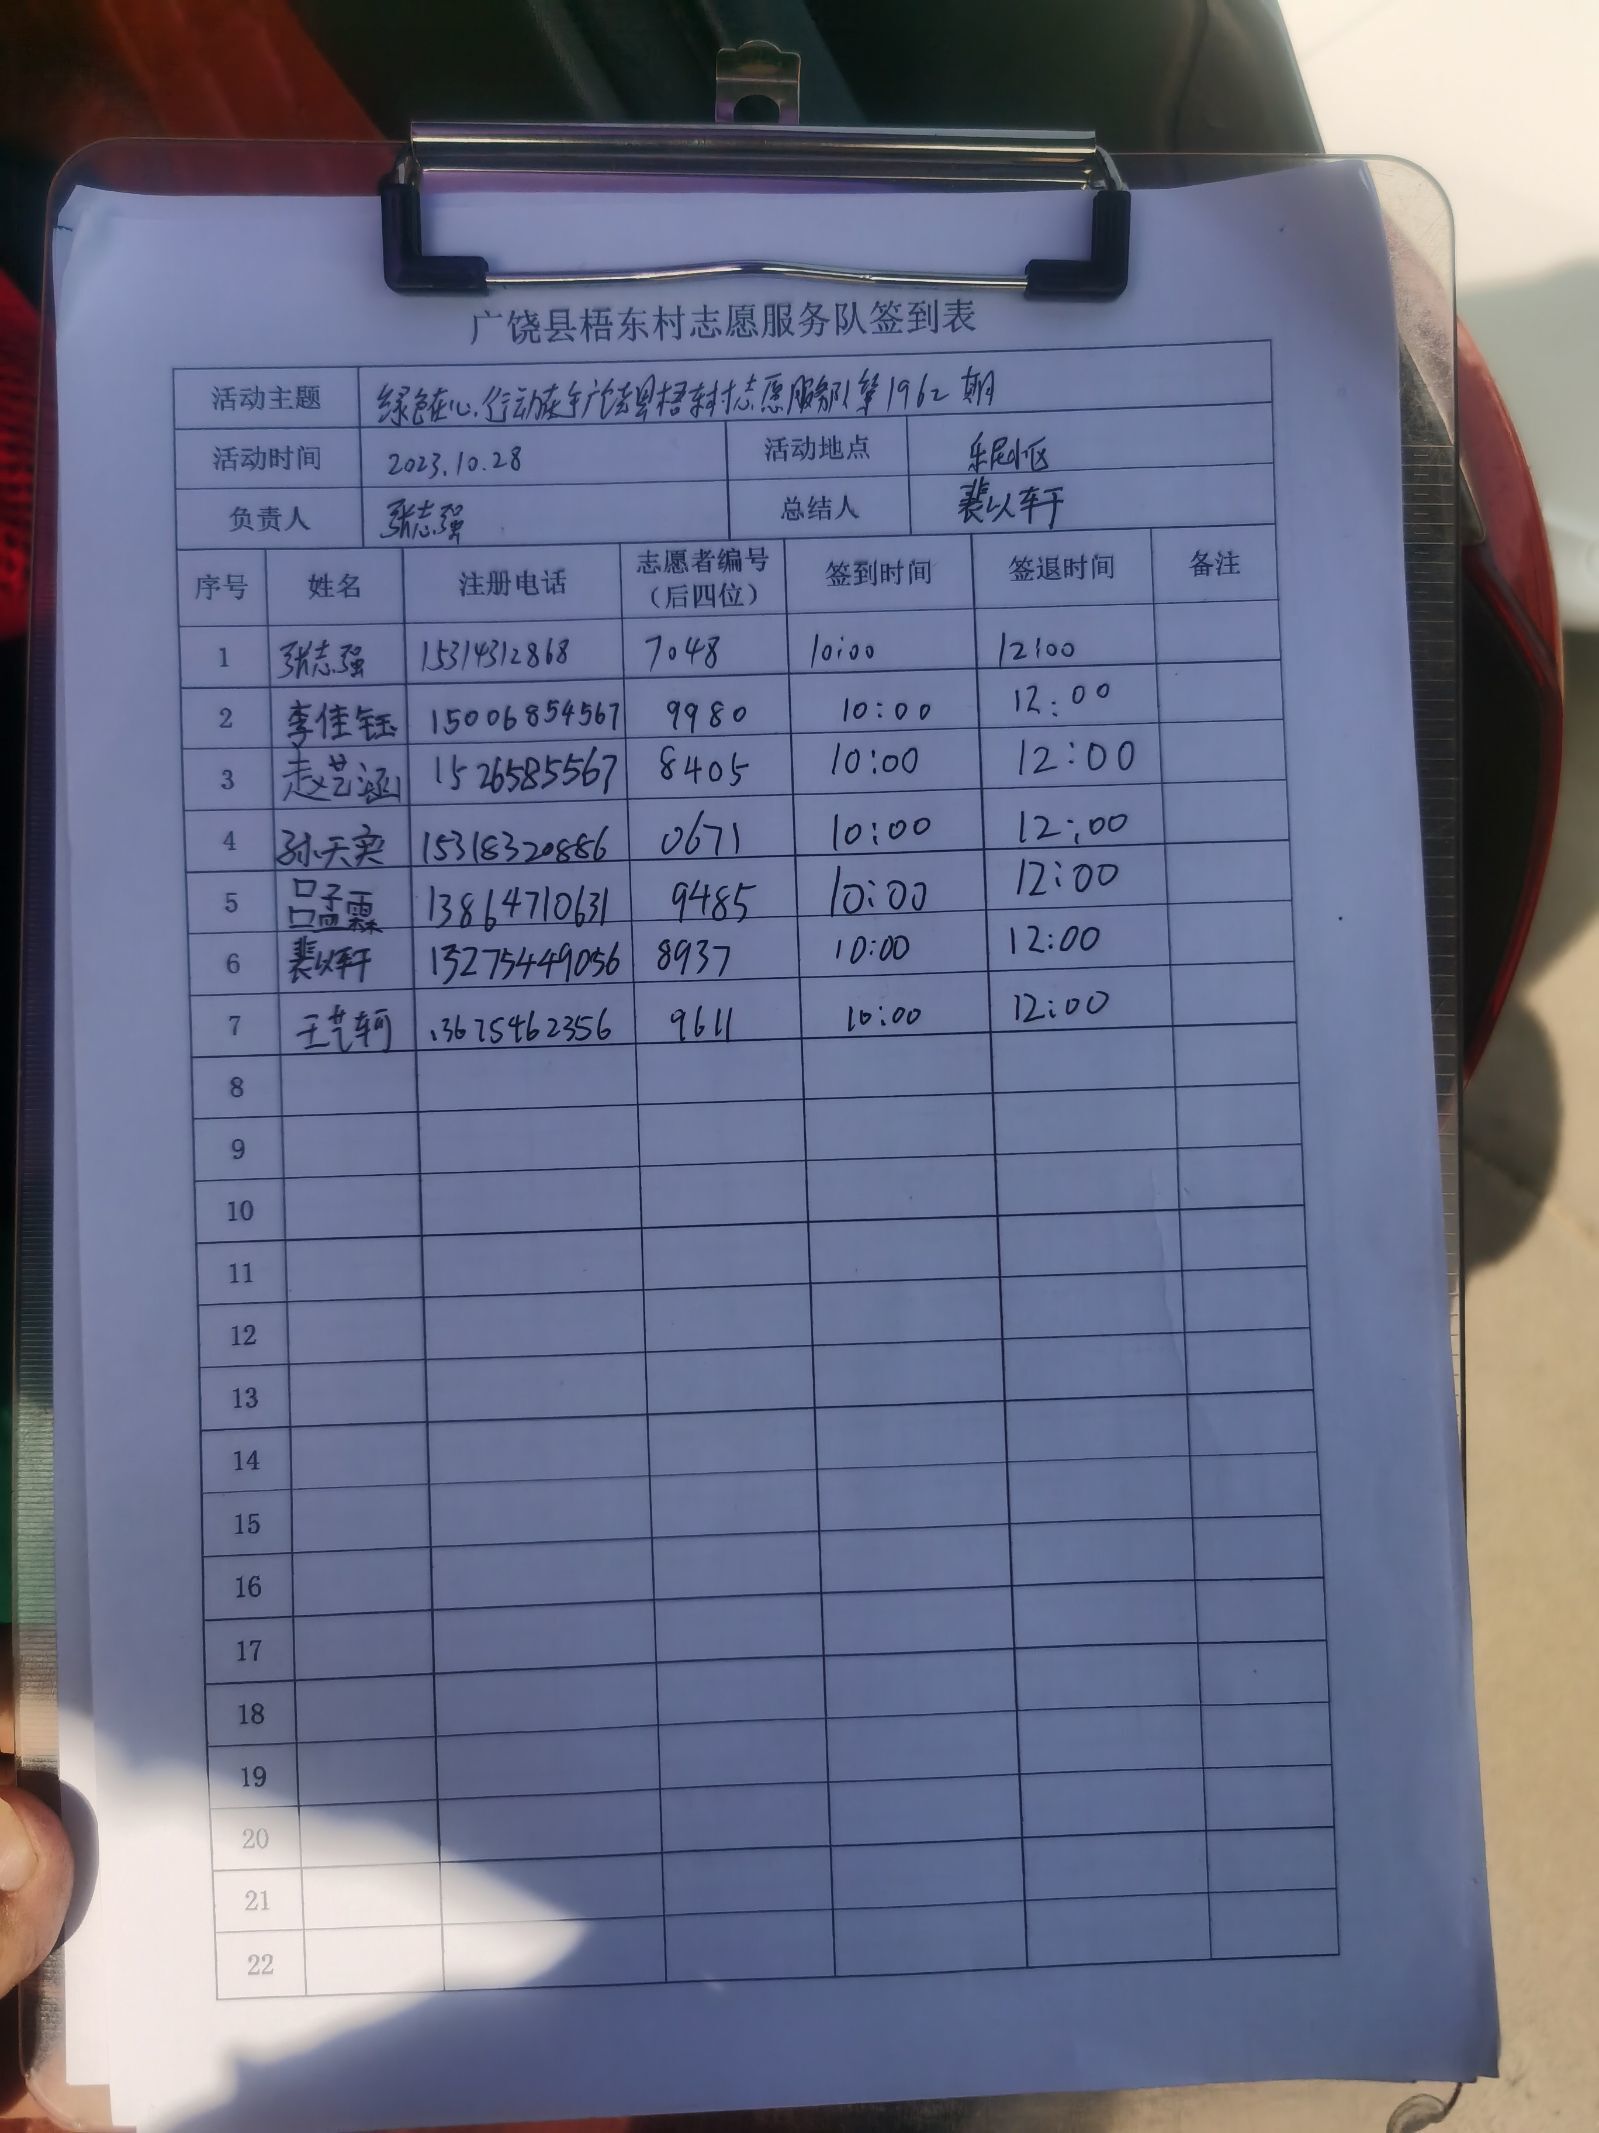 广饶县梧东村志愿服务队签到表
活动主题 绿色在心,行动在手广饶县梧东村志愿服务队第1962期
活动时间 2023.10.28 活动地点 乐居小区
负责人 张志强 总结人 裴以轩
序号 姓名 注册电话 志愿者编号（后四位） 签到时间 签退时间 备注
1 张志强 15314312868 7048 10:00 12:00
2 李佳钰 15006854567 9980 10:00 12:00
3 赵艺涵 15265855567 8405 10:00 12:00
4 孙天奕 15318320886 0671 10:00 12:00
5 吕孟霖 13864710631 9485 10:00 12:00
6 裴以轩 13275449056 8937 10:00 12:00
7 王艺轲 13675462356 9611 10:00 12:00
8
9
10
11
12
13
14
15
16
17
18
19
20
21
22